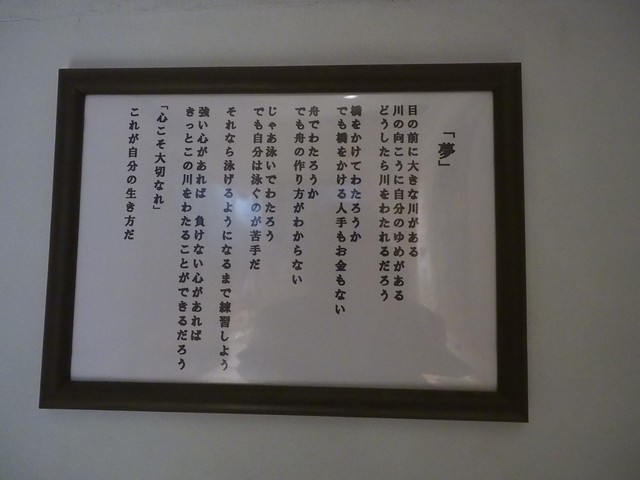 「夢」
目の前に大きな川がある
川の向こうに自分のゆめがある
どうしたら川をわたれるだろう
橋をかけてわたろうか
でも橋をかける人手もお金もない
舟でわたろうか
でも舟の作り方がわからない
じゃあ泳いでわたろう
でも自分は泳ぐのが苦手だ
それなら泳げるようになるまで練習しよう
強い心があれば　負けない心があれば
きっとこの川をわたることができるだろう
「心こそ大切なれ」
これが自分の生き方だ